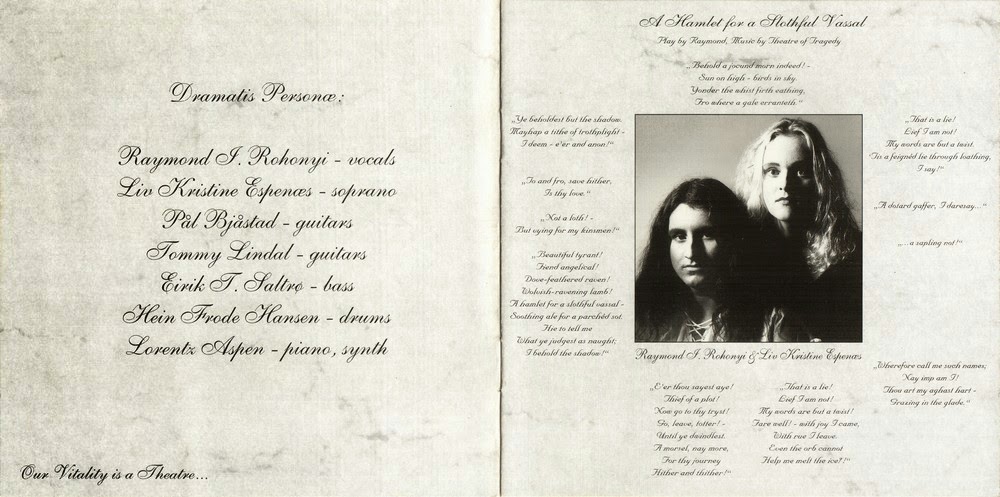 Dramatis Personæ:
Raymond I. Rohonyi - vocals
Liv Kristine Espenæs - soprano
Pål Bjåstad - guitars
Tommy Lindal - guitars
Eirik T. Saltrø - bass
Hein Frode Hansen - drums
Lorentz Aspen - piano, synth
Our Vitality is a Theatre...
A Hamlet for a Slothful Vassal
Play by Raymond, Music by Theatre of Tragedy
„Behold a jocund morn indeed! -
Sun on high - birds in sky.
Yonder the whist firth eathing,
Fro where a gale erranteth.“
„Ye beholdest but the shadow.
Mayhap a tithe of trothplight -
I deem - e'er and anon!“
„To and fro, save hither,
Is thy love.“
„Not a loth! -
But vying for my kinsmen!“
„Beautiful tyrant!
Fiend angelical!
Dove-feathered raven!
Wolvish-ravening lamb!
A hamlet for a slothful vassal -
Soothing ale for a parchéd sot.
Hie to tell me
What ye judgest as naught;
I behold the shadow!“
„That is a lie!
Lief I am not!
My words are but a twist.
'Tis a feignéd lie through loathing,
I say!“
„A dotard gaffer, I daresay...“
„...a sapling not!“
Raymond I. Rohonyi & Liv Kristine Espenæs
„Wherefore call me such names;
Nay imp am I!
Thou art my aghast hart -
Grazing in the glade.“
„E'er thou sayest aye!
Thief of a plot!
Now go to thy tryst!
Go, leave, totter! -
Until ye dwindlest.
A morsel, nay more,
For thy journey
Hither and thither!“
„That is a lie!
Lief I am not!
My words are but a twist!
Fare well! - with joy I came,
With rue I leave.
Even the orb cannot
Help me melt the ice?!“